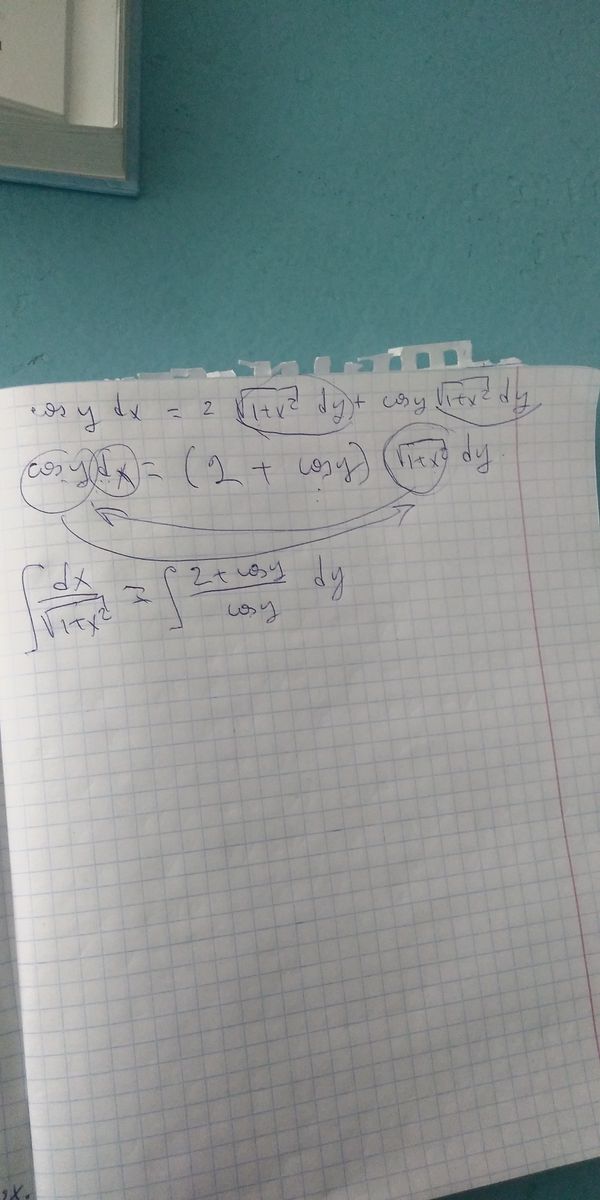 cosy dx = 2 √1+x² dy + cosy √1+x² dy
cosy dx = (2 + cosy) √1+x² dy.
∫ dx/√1+x² = ∫ 2+cosy/cosy dy